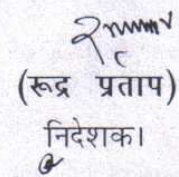 (रूद्र प्रताप)
निदेशक।